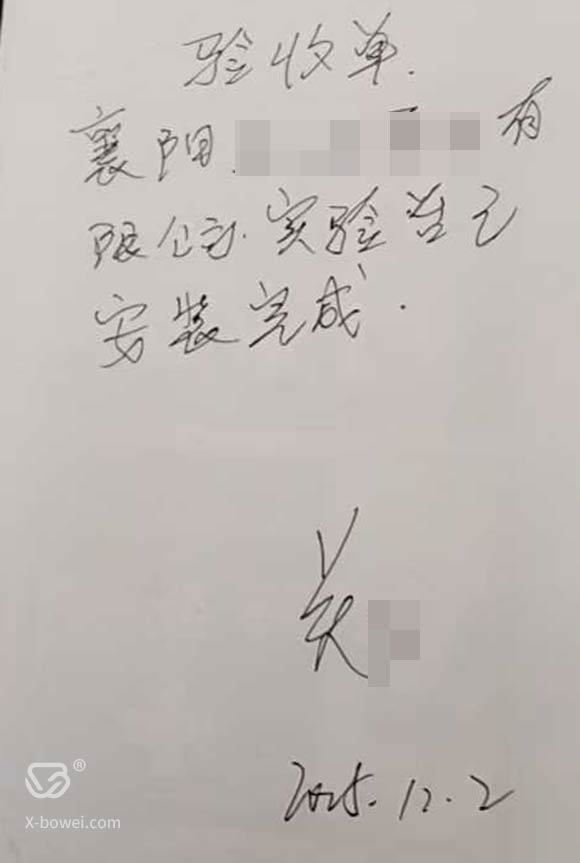 验收单.
襄阳 有
限公司.实验台已
安装完成.
关
2025.12.2
®
X-bowei.com